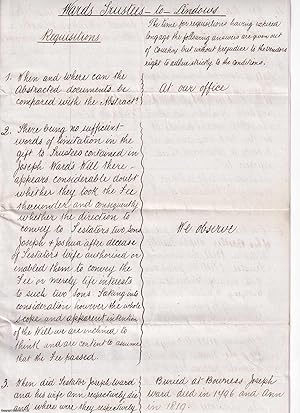 Wards Trustees to Lindows
Requisitions
The time for requisitions having expired
the following answers are given out
of Courtesy but without prejudice to the vendors
right to adhere strictly to the conditions.
1. When and where can the
Abstracted documents be
compared with the Abstract?
At our office
2. There being no sufficient
words of limitation in the
gift to Trustees contained in
Joseph Wards Will there
appears considerable doubt
whether they took the Fee
thereunder and consequently
whether the direction to
convey to Testators two sons
Joseph & Joshua after decease
of Testators wife authorised or
enabled them to convey the
Fee or merely life interests
to such two Sons. Taking into
consideration however the whole
scope and apparent intention
of the Will we are inclined to
think and are content to assume
that the Fee passed.
We observe
3. When did Testator Joseph Ward
and his wife Ann respectively die
and where were they respectively
Buried at Bowness Joseph
Ward died in 1796 and Ann
in 1819.